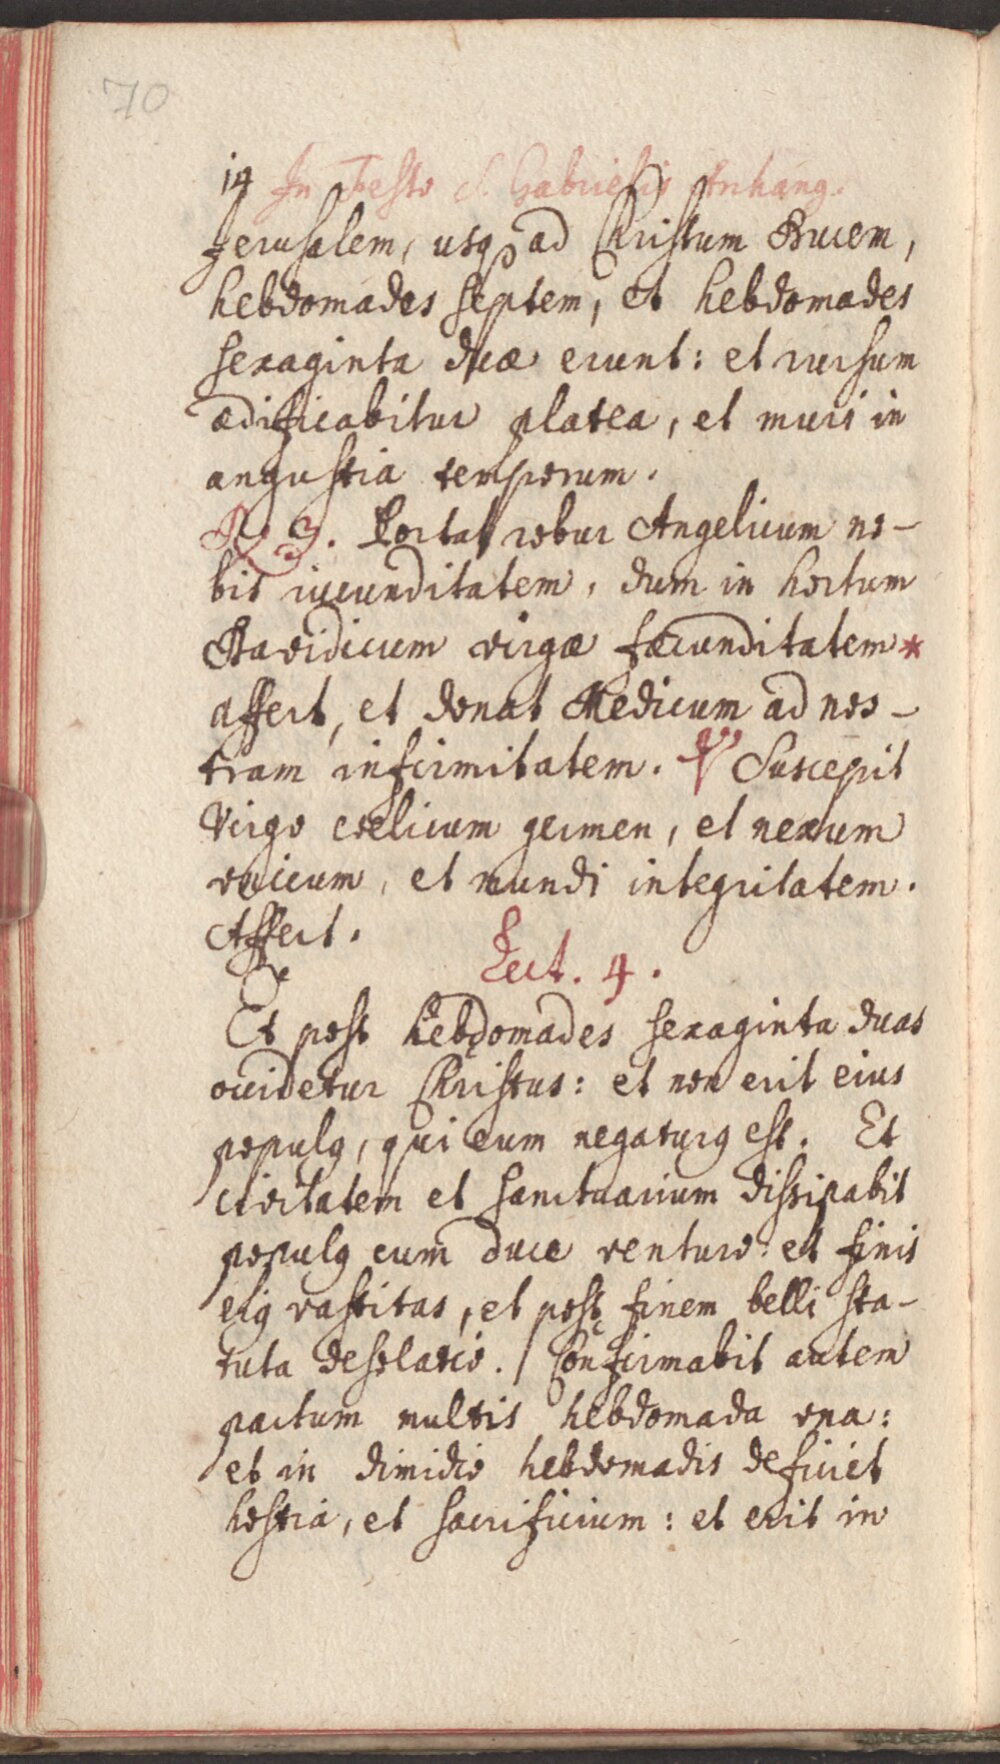 70
14 In Festo S. Gabrielis Archang.
Jerusalem, usq3 ad Christum Ducem,
hebdomades septem, et hebdomades
sexaginta duæ erunt: et rursum
ædificabitur platea, et muri in
angustia temporum.
℟ 3. Portat robur Angelicum no-
bis iucunditatem, dum in hortum
Davidicum virgæ fæcunditatem *
affert, et donat Medicum ad nos-
tram infirmitatem. ℣ Suscepit
Virgo cœlicum germen, et nexum
unicum, et mundi integritatem.
Affert.
Lect. 4.
Et post hebdomades sexaginta duas
occidetur Christus: et non erit eius
populꝰ, qui eum negaturꝰ est. Et
civitatem et sanctuarium dissipabit
populꝰ cum duce venturo: et finis
eiꝰ vastitas, et post finem belli sta-
tuta desolatio. / Confirmabit autem
pactum multis hebdomada una:
et in dimidio hebdomadis deficiet
hostia, et sacrificium: et erit in